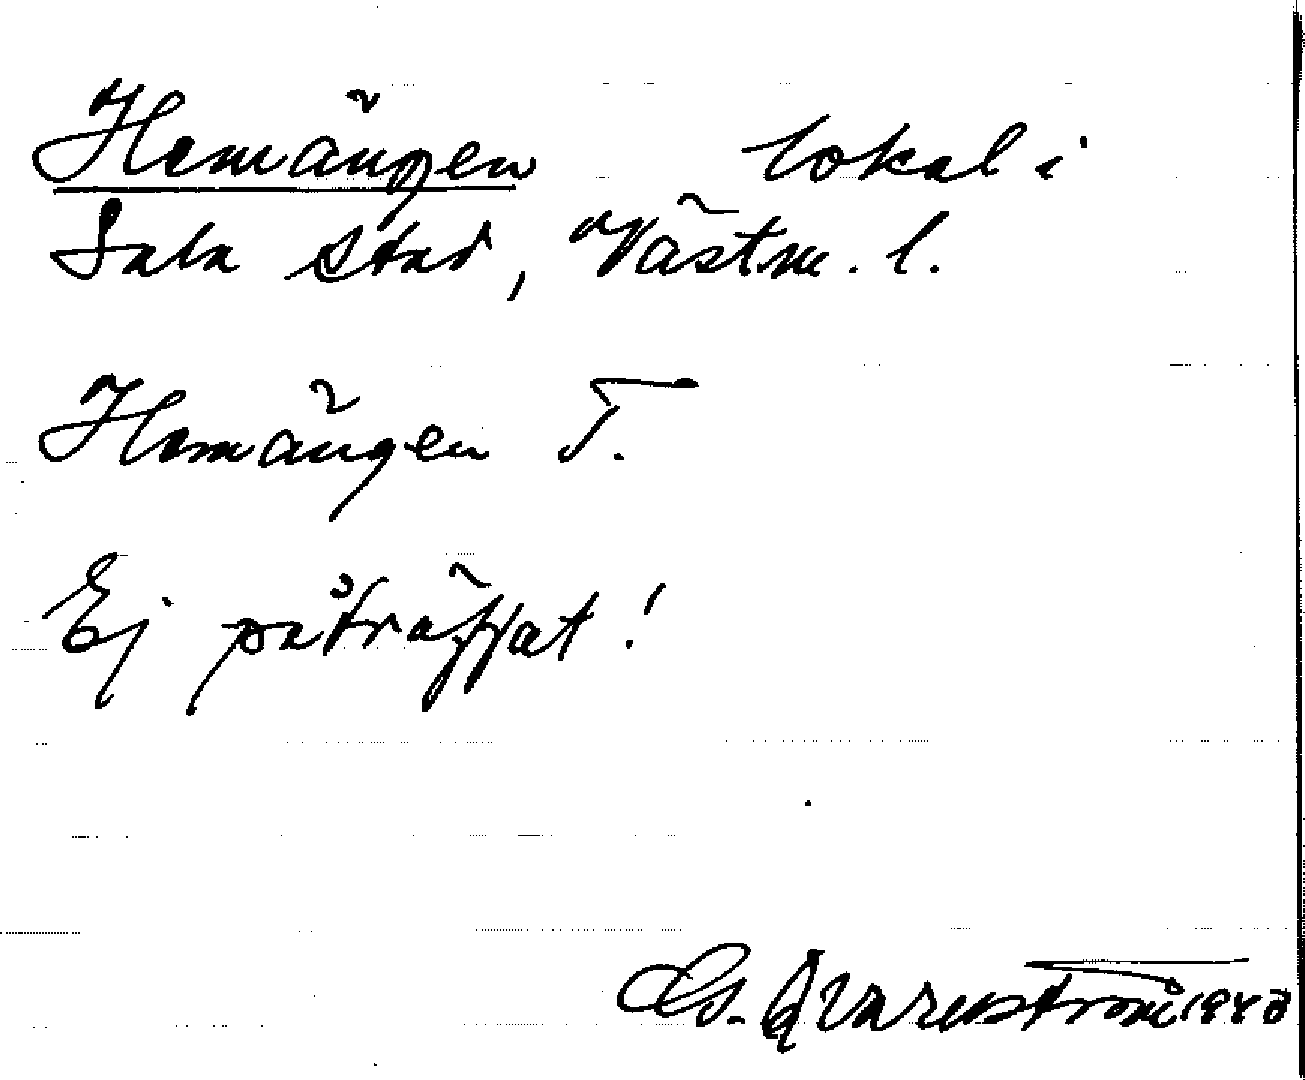 Hemängen lokal i
Sala stad, Västm. l.
Hemängen T.
Ej påträffat!
G. Qvarnström 1940